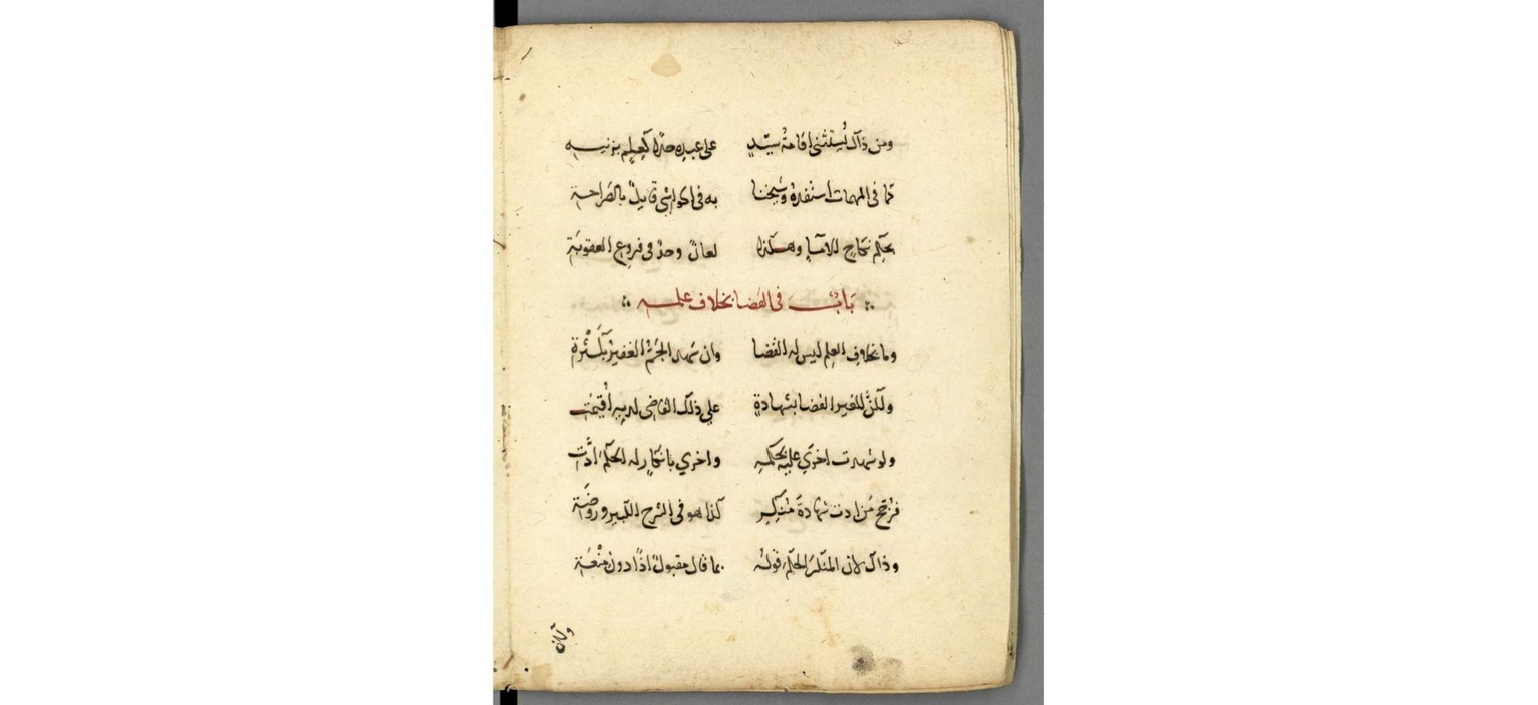 ومن ذاك يُستثنى اقامةُ سيّدٍ على عبدِه حدًّا كعِلمٍ بزنيـه
كما في المهمات استفدهُ وشيخنا به في الحواشي قايلٌ بالصَّراحة
بحكم نكاحٍ للاما وهكذا وحدٌ في فروع العقوبَة
بابٌ في القضا بخلاف علمه
وما بخلافِ العِلم ليس له القضا وان شهد الجَمُّ الغفيرُ بكَثْرة
ولكنْ للغير القضا بشهادةٍ على ذلك القاضي لديهِ أُقيمَت
ولو شهدت اخرَي عليه بحكمه واخري بانكارٍ له الحكمَ ادَّت
فرَجّح مَن ادت شهادةَ مُنكِرٍ كذا هو في الشرح الكبير وروضَة
وذاك لان المنكرَ الحكمَ قولُه بما قال مقبولٌ اذًا دون
ولان